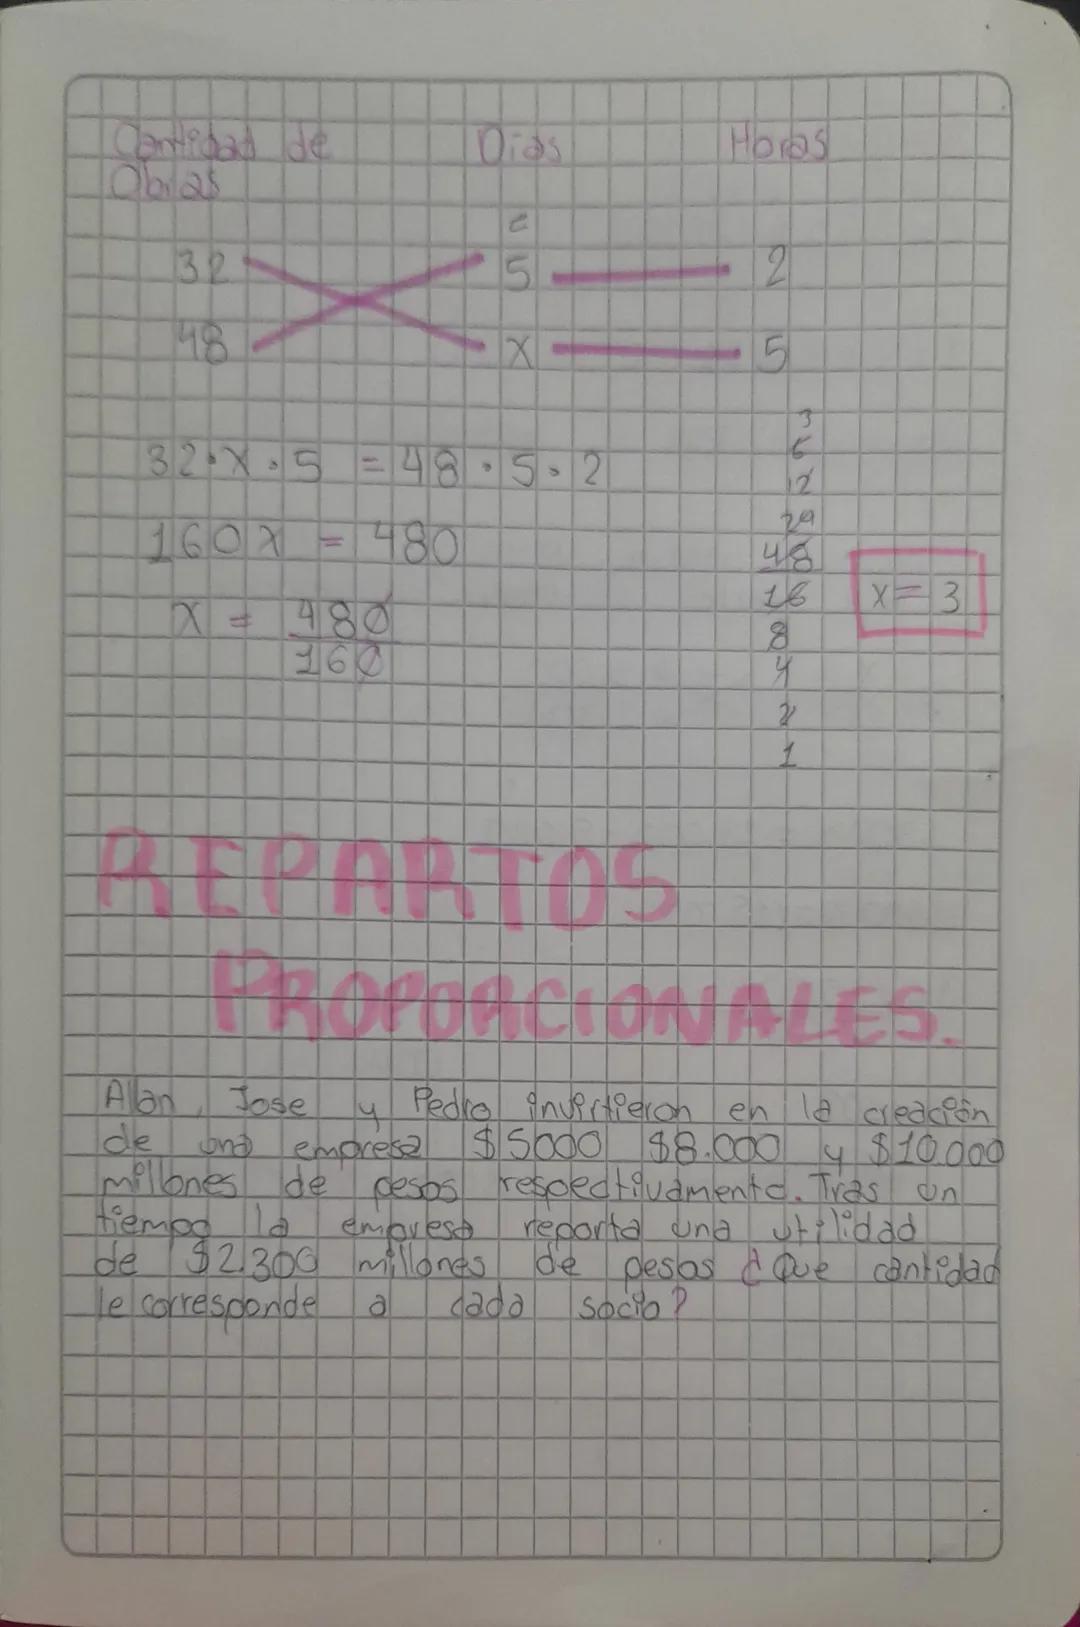 Cantidad de Dias Horas
Obras
c
32 5 2
48 x 5
3
6
32 • x • 5 = 48 • 5 • 2
12
24
160x = 480
48
16 x = 3
x = 480
160
8
4
2
1
REPARTOS
PROPORCIONALES.
Alan, Jose y Pedro invirtieron en la creación
de una empresa $5000 $8.000 y $10.000
millones de pesos respectivamente. Tras un
tiempo la empresa reporta una utilidad
de $2.300 millones de pesos ¿Que cantidad
le corresponde a cada socio?